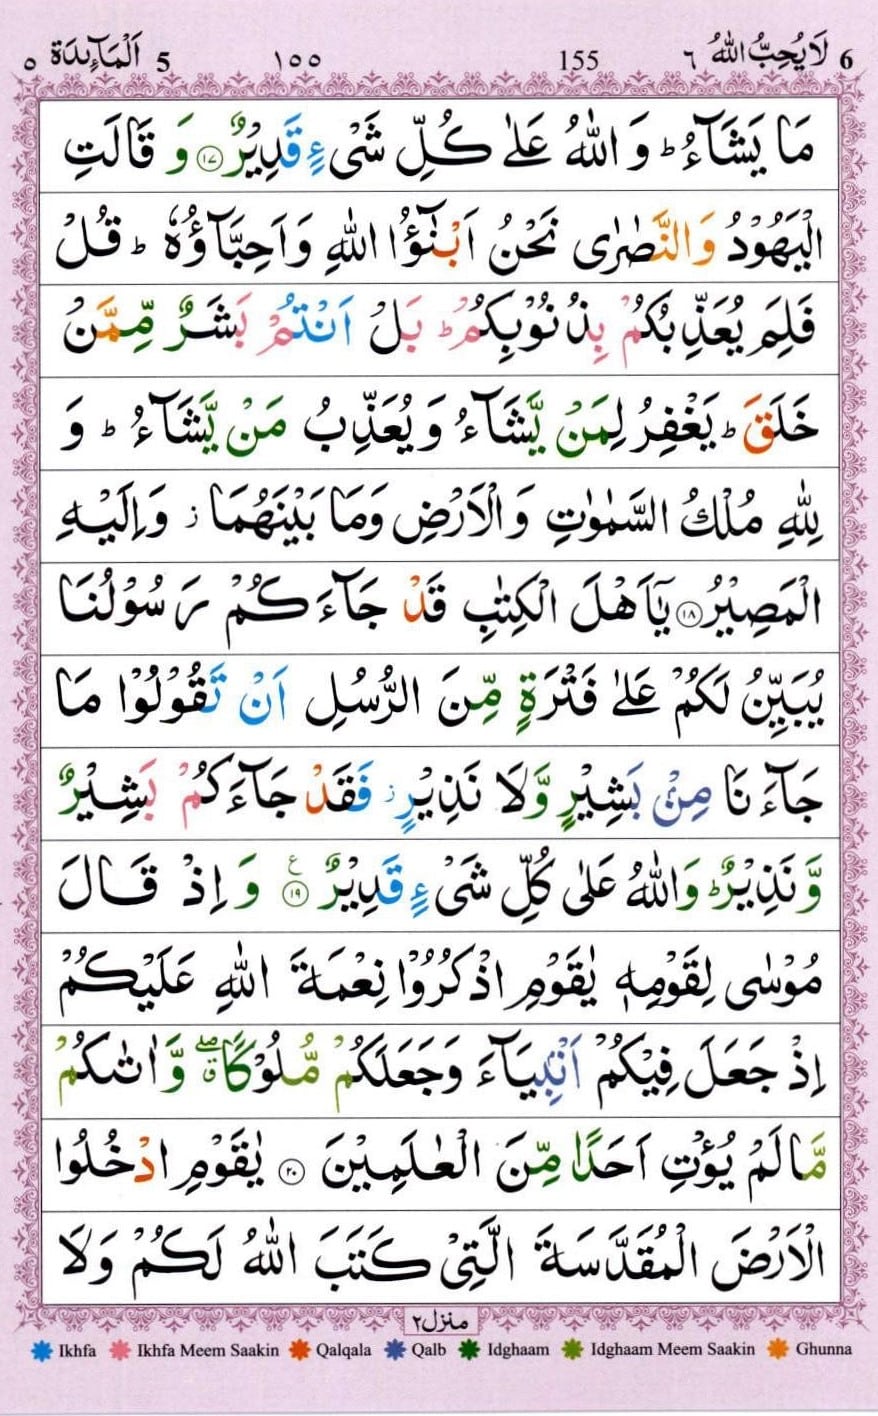 6 لَا يُحِبُّ اللّٰهُ ٦ 155 ١٥٥ 5 اَلْمَآئِدَة ٥
مَا يَشَآءُ ؕ وَ اللّٰهُ عَلٰى كُلِّ شَیْءٍ قَدِيْرٌ ۝١٧ وَ قَالَتِ
الْيَهُوْدُ وَالنَّصٰرٰى نَحْنُ اَبْنٰٓؤُا اللّٰهِ وَاَحِبَّآؤُهٗ ؕ قُلْ
فَلِمَ يُعَذِّبُكُمْ بِذُنُوْبِكُمْ ؕ بَلْ اَنْتُمْ بَشَرٌ مِّمَّنْ
خَلَقَ ؕ يَغْفِرُ لِمَنْ يَّشَآءُ وَ يُعَذِّبُ مَنْ يَّشَآءُ ؕ وَ
لِلّٰهِ مُلْكُ السَّمٰوٰتِ وَ الْاَرْضِ وَمَا بَيْنَهُمَا ۡ وَاِلَيْهِ
الْمَصِيْرُ ۝١٨ يٰۤاَهْلَ الْكِتٰبِ قَدْ جَآءَكُمْ رَسُوْلُنَا
يُبَيِّنُ لَكُمْ عَلٰى فَتْرَةٍ مِّنَ الرُّسُلِ اَنْ تَقُوْلُوْا مَا
جَآءَنَا مِنْۢ بَشِيْرٍ وَّلَا نَذِيْرٍ ۡ فَقَدْ جَآءَكُمْ بَشِيْرٌ
وَّنَذِيْرٌ ؕ وَاللّٰهُ عَلٰى كُلِّ شَیْءٍ قَدِيْرٌ ۝١٩ ع وَ اِذْ قَالَ
مُوْسٰى لِقَوْمِهٖ يٰقَوْمِ اذْكُرُوْا نِعْمَةَ اللّٰهِ عَلَيْكُمْ
اِذْ جَعَلَ فِيْكُمْ اَنْۢبِيَآءَ وَجَعَلَكُمْ مُّلُوْكًا ۖۗ وَّاٰتٰىكُمْ
مَّا لَمْ يُؤْتِ اَحَدًا مِّنَ الْعٰلَمِيْنَ ۝٢٠ يٰقَوْمِ ادْخُلُوا
الْاَرْضَ الْمُقَدَّسَةَ الَّتِیْ كَتَبَ اللّٰهُ لَكُمْ وَلَا
منزل٢
Ikhfa Ikhfa Meem Saakin Qalqala Qalb Idghaam Idghaam Meem Saakin Ghunna